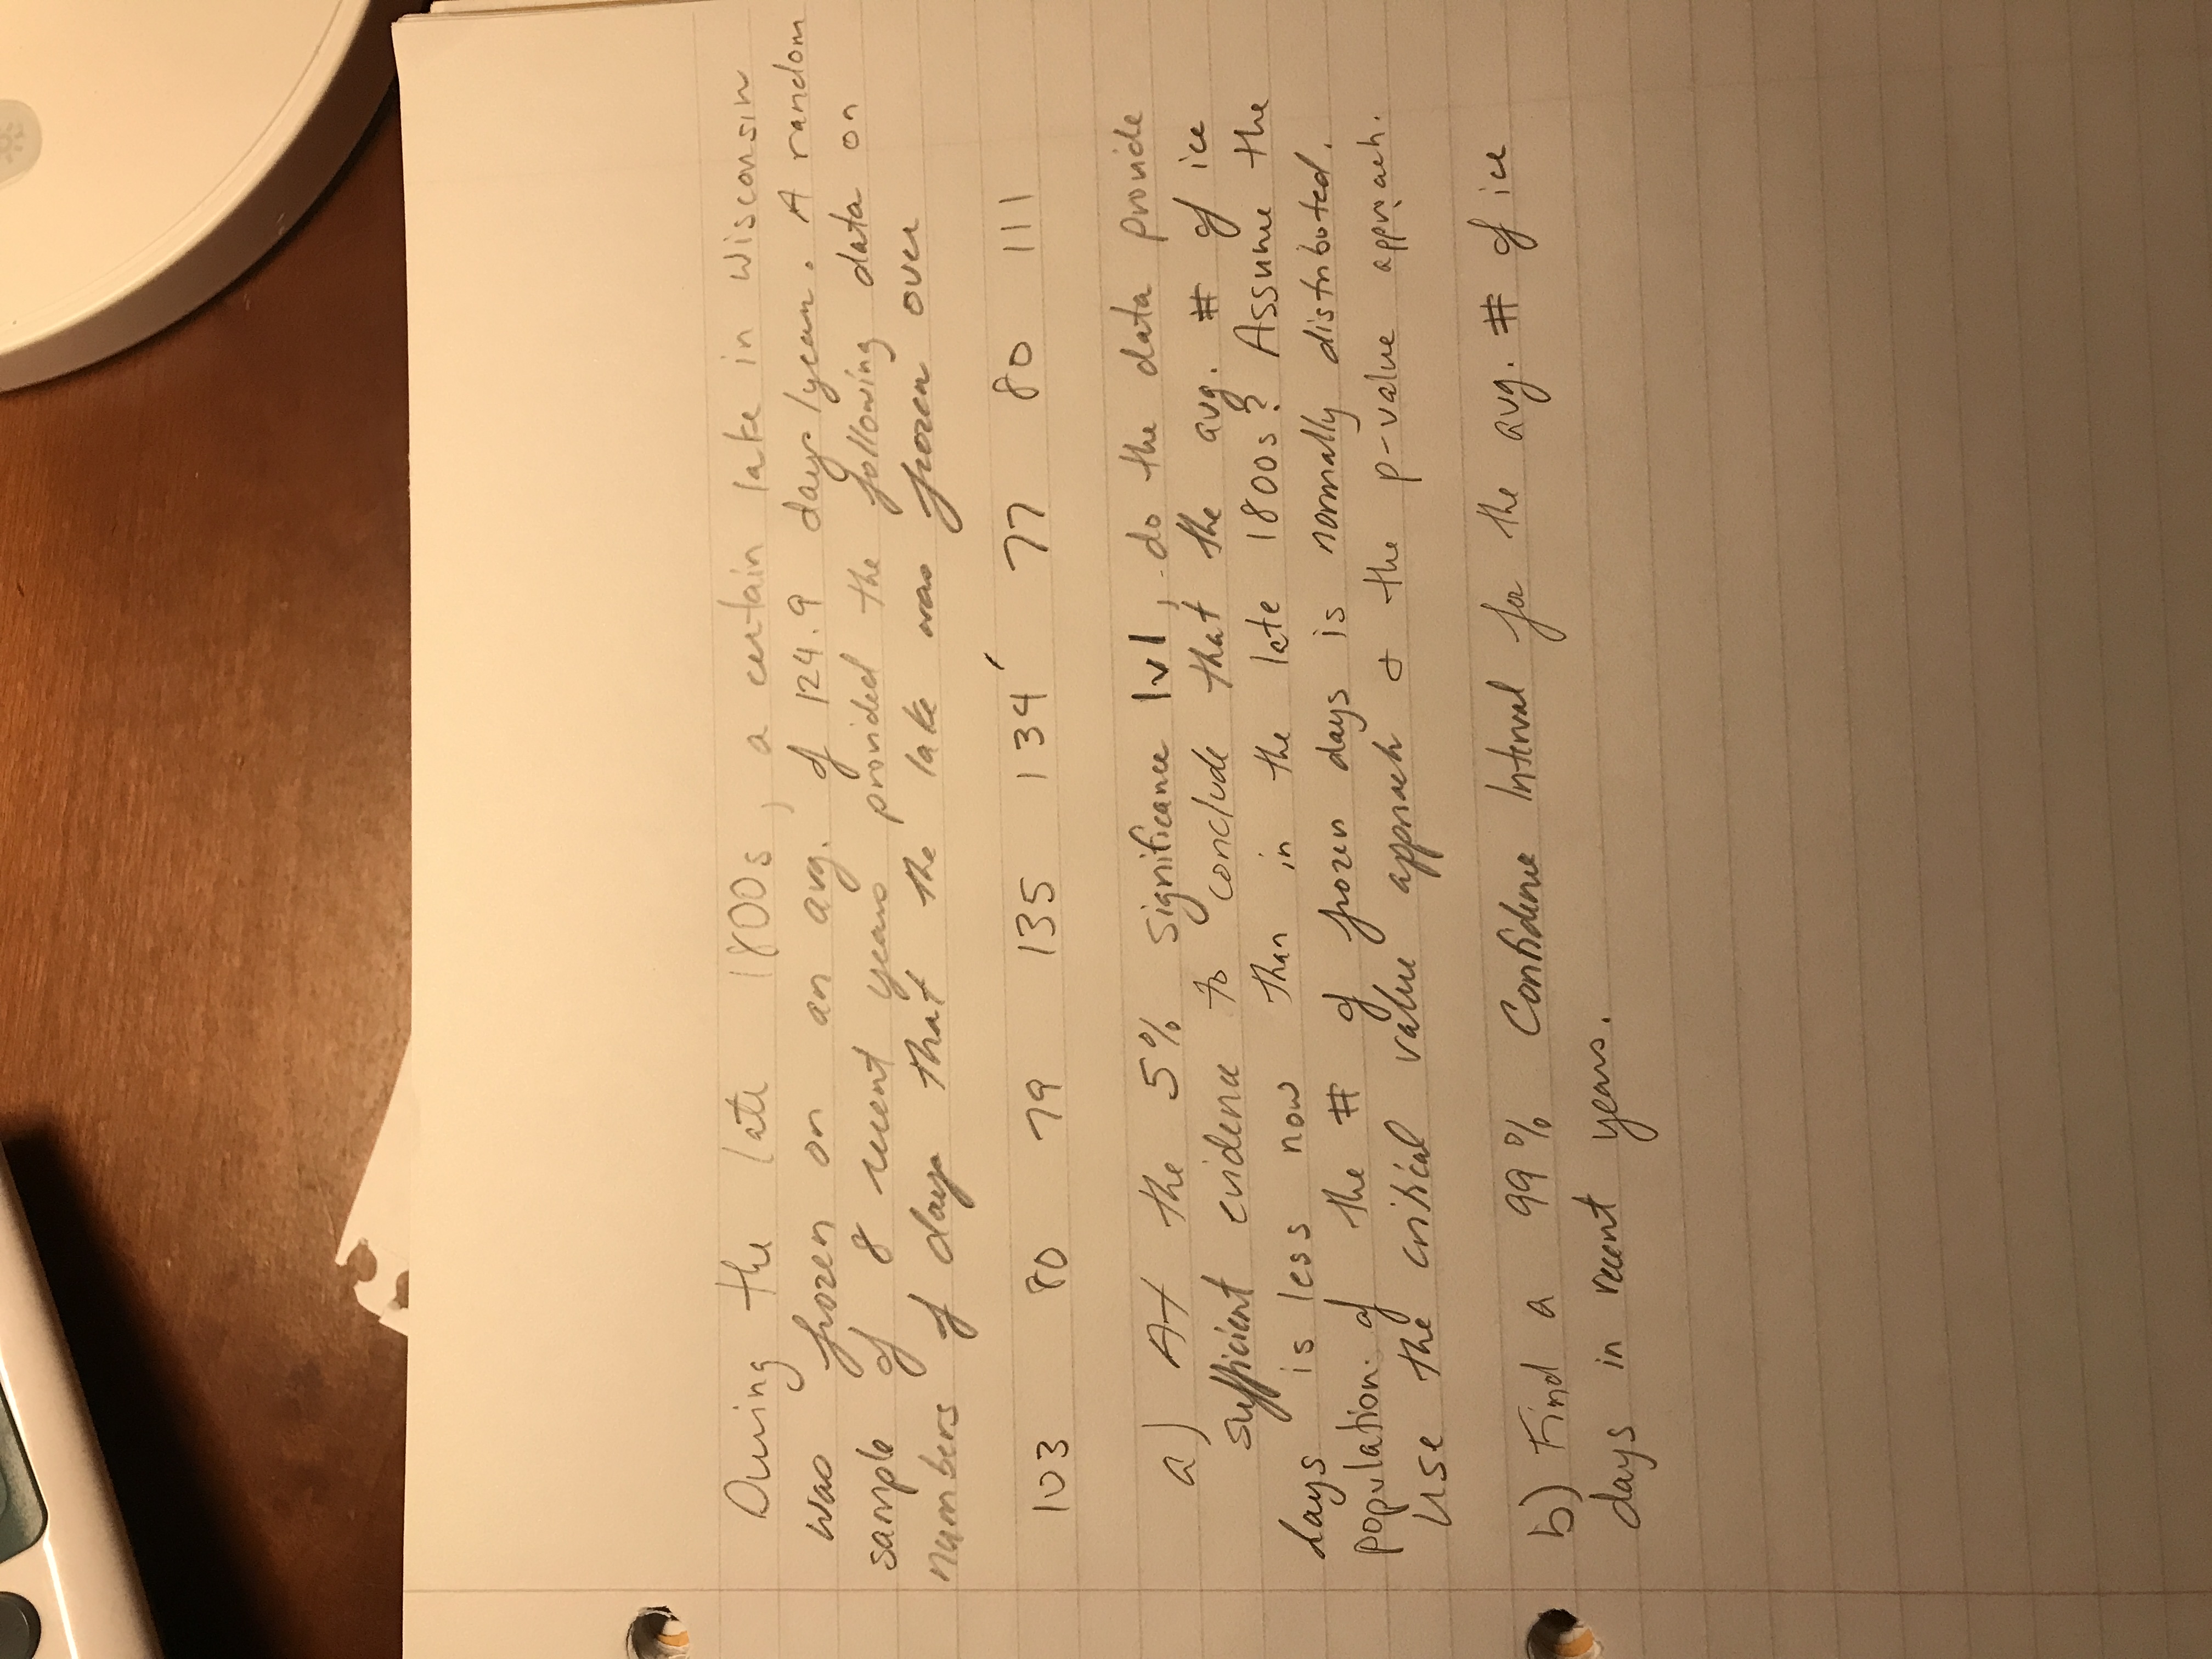 During the late 1800s, a certain lake in Wisconsin
was frozen on an avg. of 124.9 days/year. A random
sample of 8 recent years provided the following data on
numbers of days that the lake was frozen over
103 80 79 135 134 77 80 111
a) At the 5% significance lvl, do the data provide
sufficient evidence to conclude that the avg. # of ice
days is less now than in the late 1800s? Assume the
population of the # of frozen days is normally distributed.
Use the critical value approach & the p-value approach.
b) Find a 99% Confidence Interval for the avg. # of ice
days in recent years.